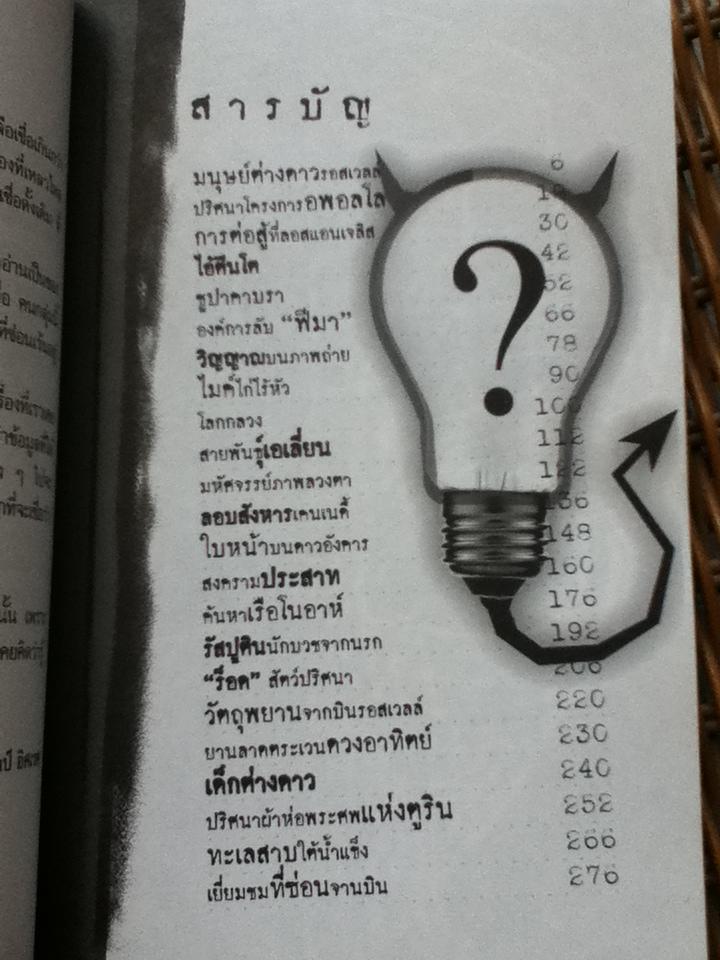 สารบัญ
มนุษย์ต่างดาวรอสเวลล์ 6
ปริศนาโครงการอพอลโล
การต่อสู้ที่ลอสแอนเจลิส 30
ไอ้ตีนโต 42
ชูปาคาบรา 52
องค์การลับ “ฟีมา” 66
วิญญาณบนภาพถ่าย 78
ไมค์ไก่ไร้หัว 90
โลกกลวง 100
สายพันธุ์เอเลี่ยน 112
มหัศจรรย์ภาพลวงตา 122
ลอบสังหารเคนเนดี้ 136
ใบหน้าบนดาวอังคาร 148
สงครามประสาท 160
ค้นหาเรือโนอาห์ 176
รัสปูตินนักบวชจากนรก 192
“ร็อด” สัตว์ปริศนา 206
วัตถุพยานจากบินรอสเวลล์ 220
ยานลาดตระเวนดวงอาทิตย์ 230
เด็กต่างดาว 240
ปริศนาผ้าห่อพระศพแห่งตูริน 252
ทะเลสาบใต้น้ำแข็ง 266
เยี่ยมชมที่ซ่อนจานบิน 276
?